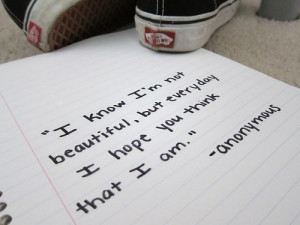 "I know I'm not
beautiful, but everyday
I hope you think
that I am."
-anonymous